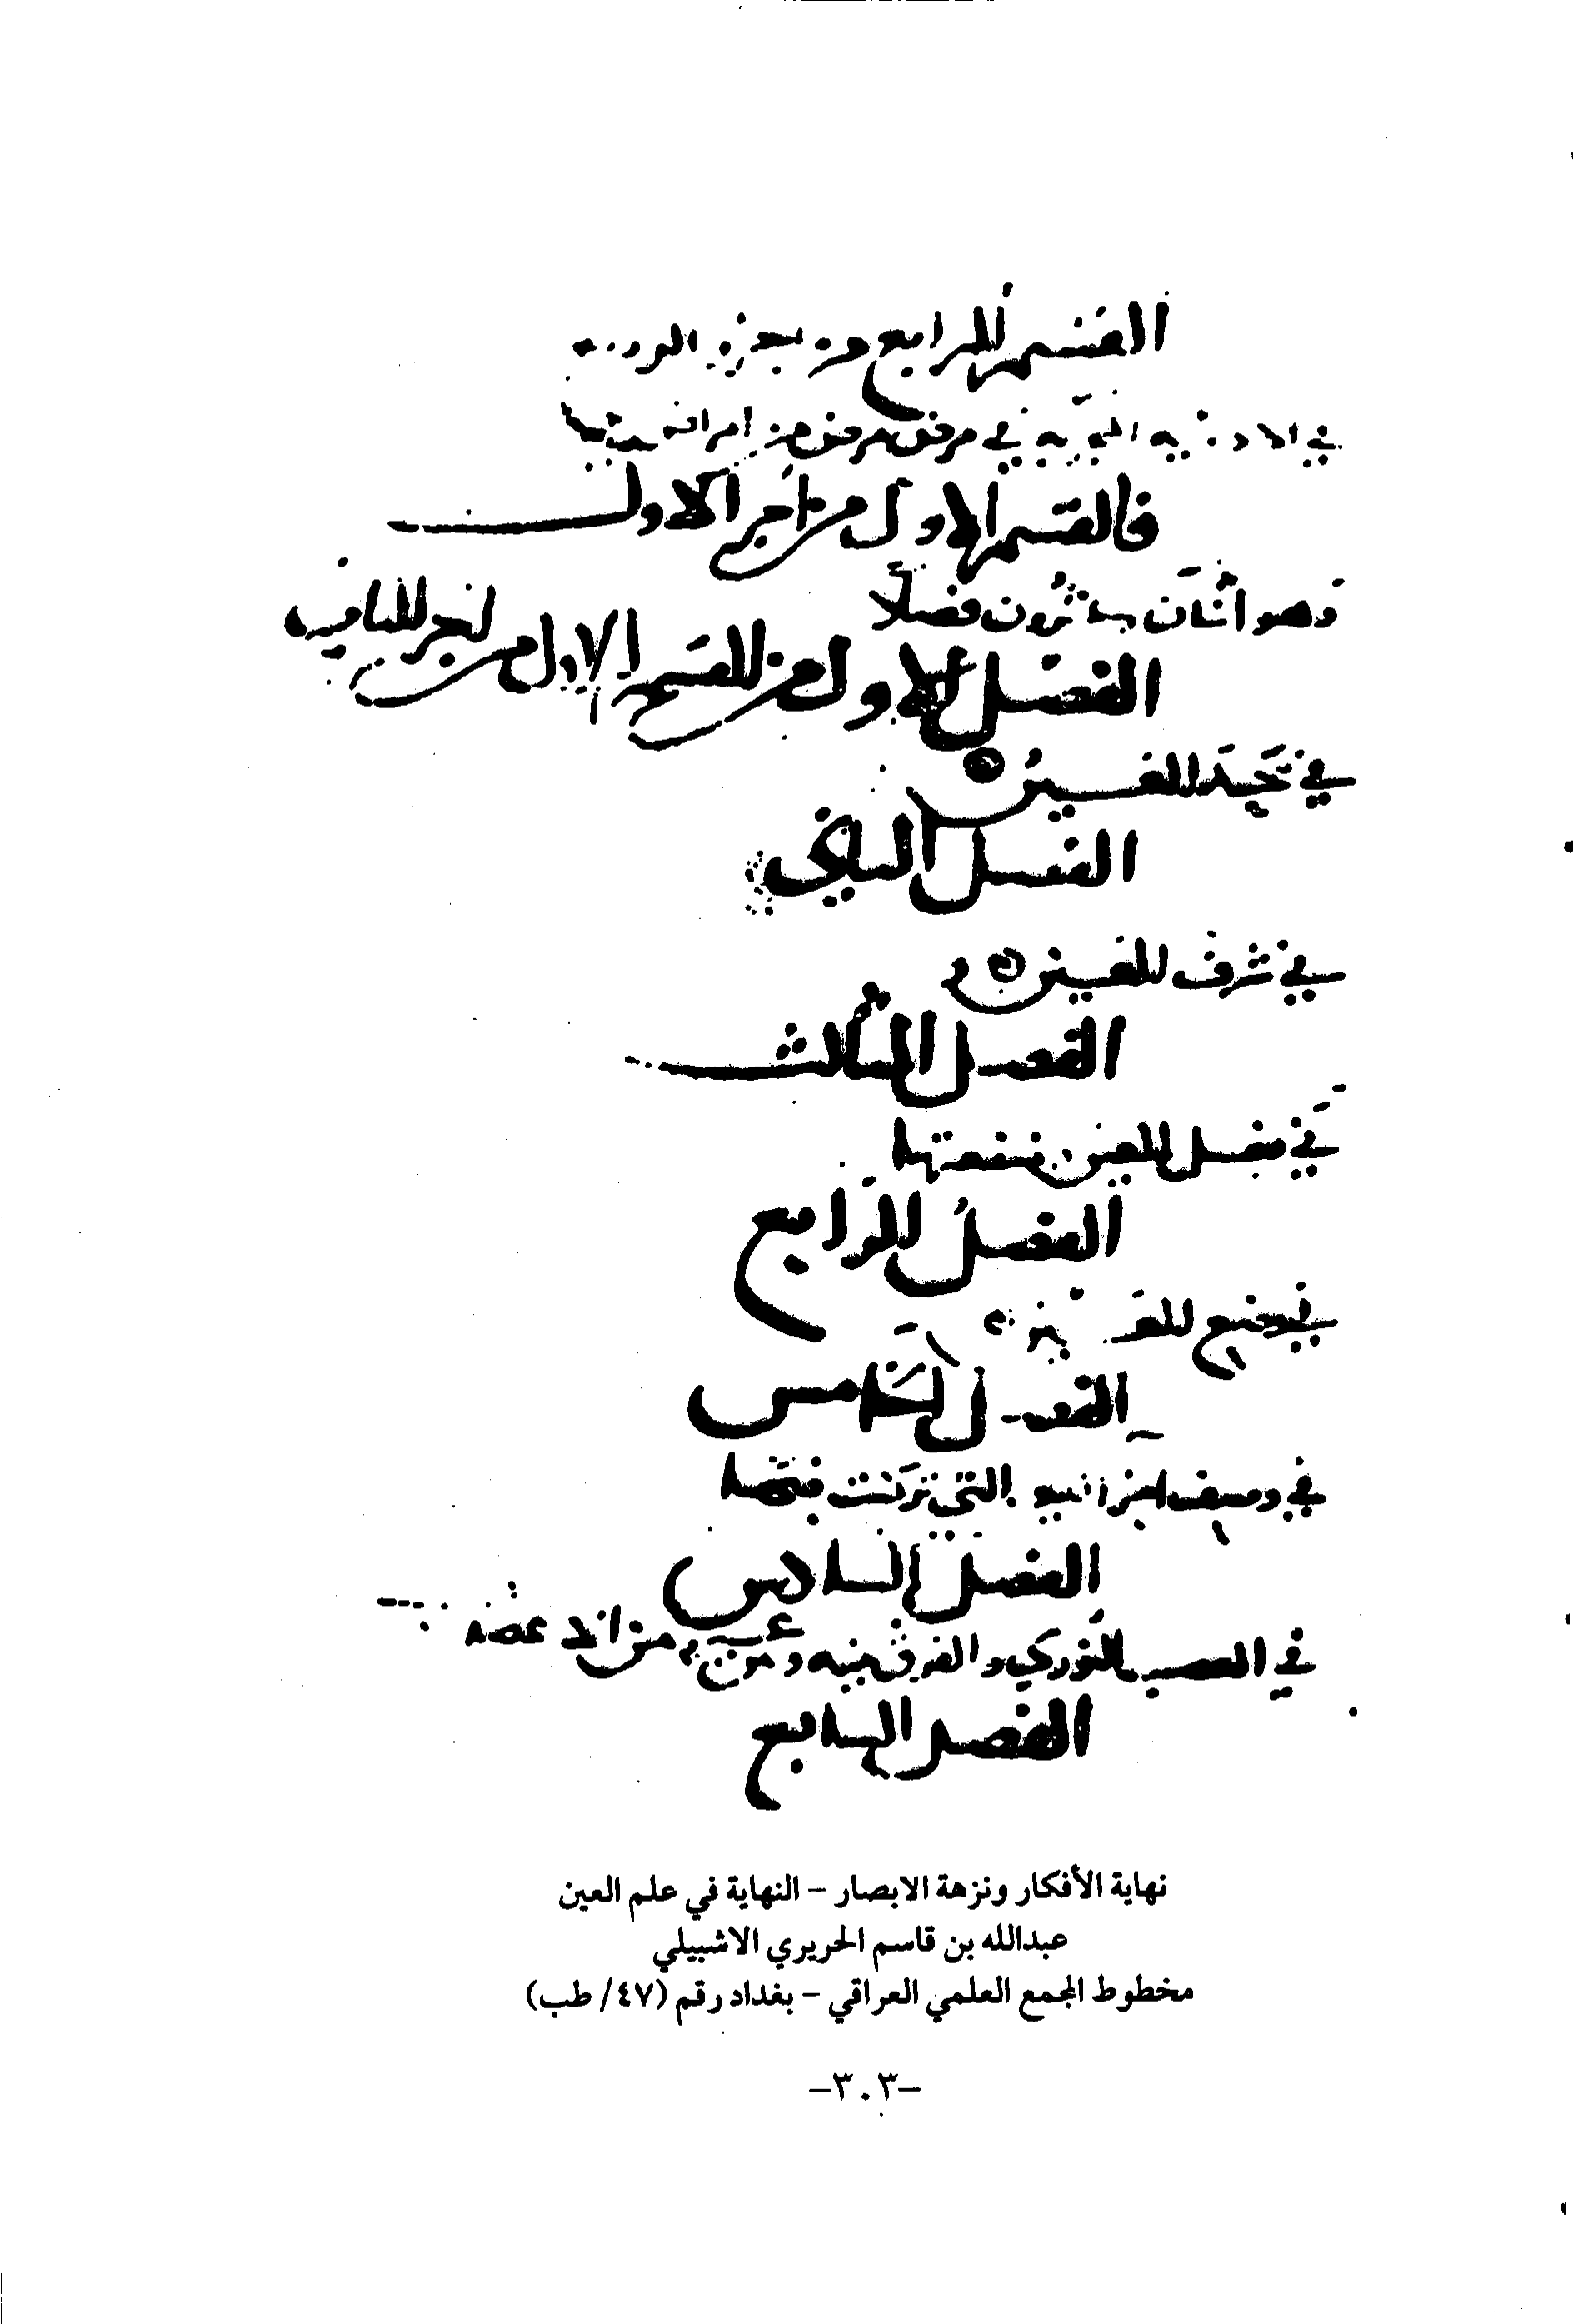 القسم الرابع من الجزء
في الادوية في مرض مرض من امراض
فالقسم الاول من الجزء الاول
وهو اثنان وعشرون فصلا
الفصل الاول من القسم الاول من الجزء
في تحيد العين
الفصل الثاني
في شرف العين
الفصل الثالث
في فعل العين ومنفعتها
الفصل الرابع
في وضع العين
الفصل الخامس
في وصف التي تركبت منها
الفصل السادس
في العصب النوري والفرق بينه وبين غيره من الاعصاب
الفصل السابع
نهاية الأفكار ونزهة الابصار - النهاية في علم العين
عبدالله بن قاسم الحريري الاشبيلي
مخطوط المجمع العلمي العراقي - بغداد رقم (٤٧/ طب)
-٣٠٣-